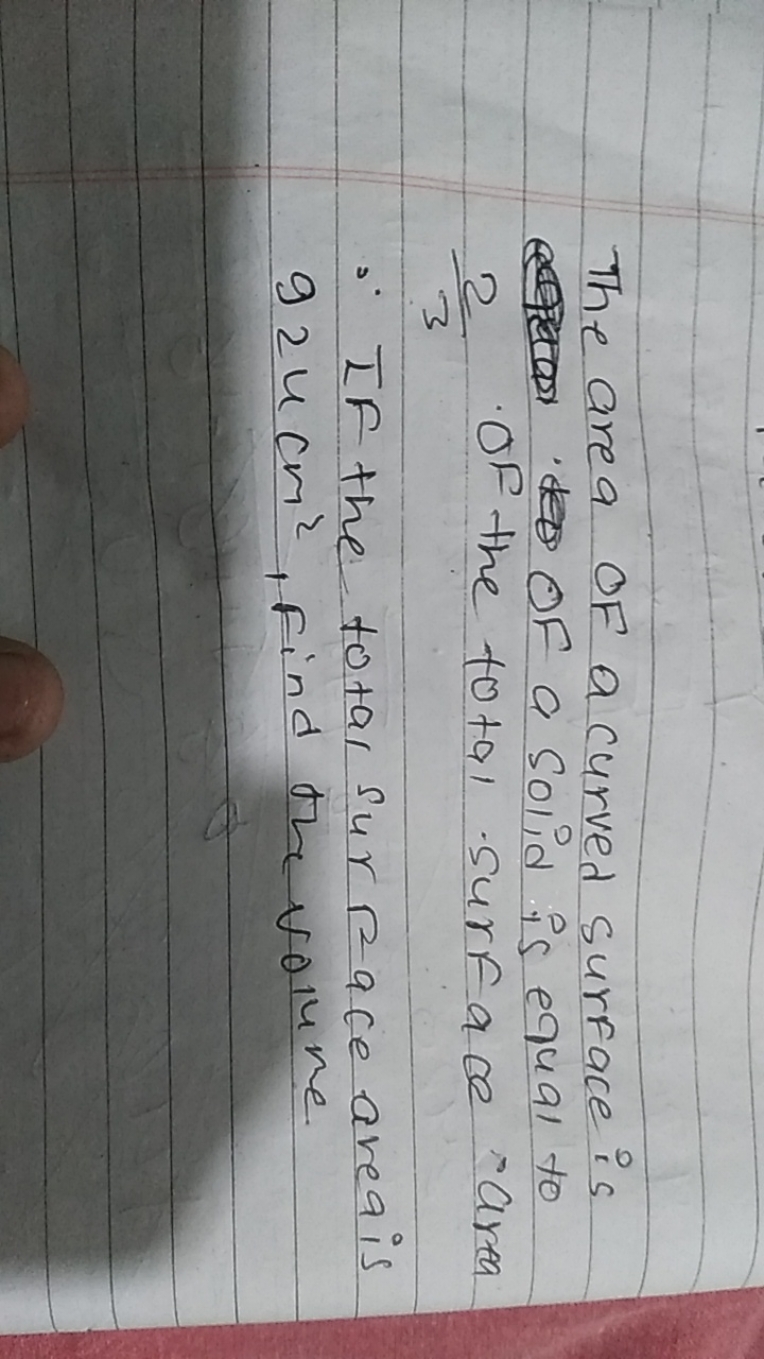 The area OF a curved surface is
OF a solid is equal to
2/3 OF the total surface area
∴ IF the total surface area is
924 cm², find the volume